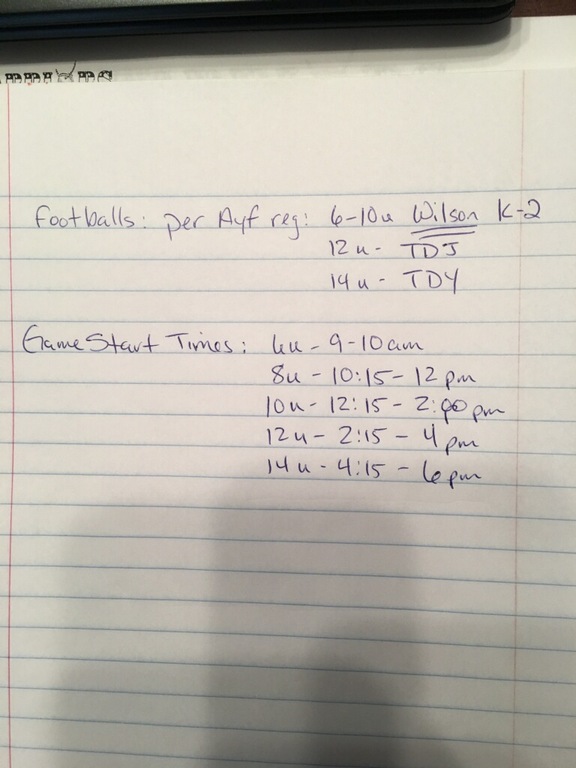 Footballs: per Ayf reg: 6-10u Wilson K-2
12u- TDJ
14u - TDY
Game Start Times: 6u - 9-10am
8u - 10:15 - 12 pm
10u - 12:15 - 2:00 pm
12u - 2:15 - 4 pm
14u - 4:15 - 6 pm